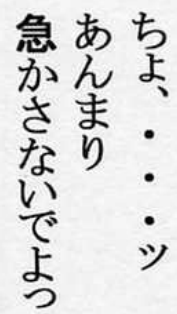 ちょ、・・・ッ
あんまり
急かさないでよっ